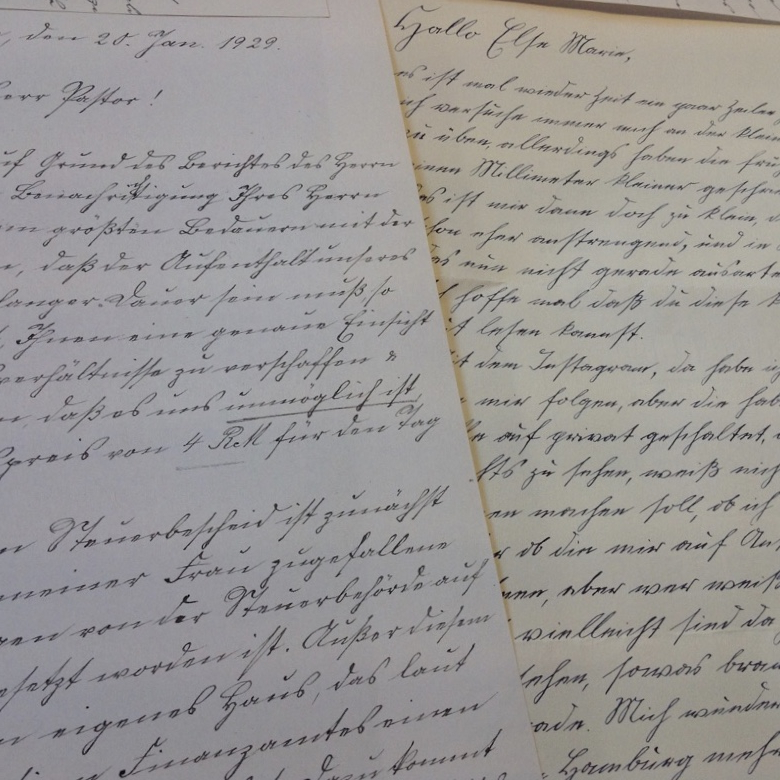 , den 20. Jan. 1929.
Herr Pastor!
auf Grund des Berichtes des Herrn
Benachrichtigung Ihres Herrn
größten Bedauern mit der
daß der Aufenthalt unseres
langer Dauer sein muß, so
Ihnen eine genaue Einsicht
verhältnisse zu verschaffen &
daß es uns unmöglich ist,
preis von 4 RM für den Tag
Steuerbescheid ist zunächst
meiner Frau zugefallene
von der Steuerbehörde auf
gesetzt worden ist. Außer diesem
eigenes Haus, das laut
Finanzamtes einen
dazu kommt
Hallo Else Marie,
es ist mal wieder Zeit ein paar Zeilen
ich versuche immer mich an der klein
zu üben, allerdings haben die frü
einen Millimeter kleiner geschr
es ist mir dann doch zu klein,
schon eher anstrengend, und in
das nun nicht gerade ausarte
hoffe mal daß du diese
lesen kannst.
mit dem Instagram, da habe
mir folgen, aber die hab
auf privat geschaltet,
zu sehen, weiß nich
machen soll, ob ich
ob die mir auf
aber wer weiß
vielleicht sind da
sehen, sowas brau
Mich wunder
Hamburg mehr